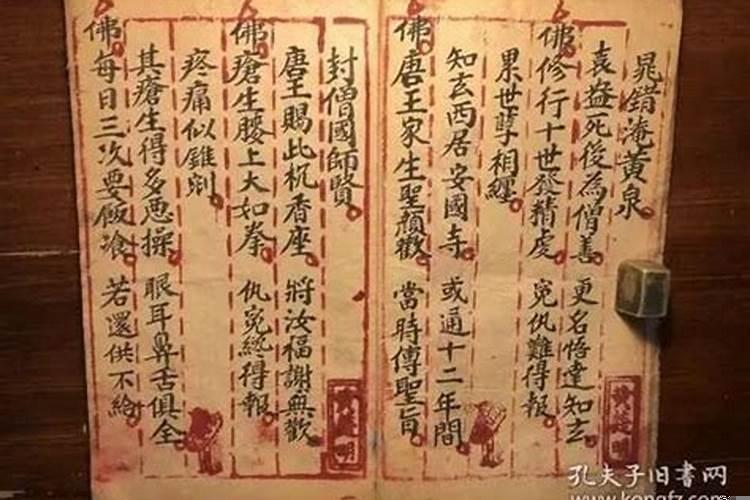 晁錯淹黃泉
袁盎死後為僧善 更名悟達知玄
佛修行十世發精虔 冤仇難得報
累世孽相纏
知玄西居安國寺 或通十二年間
佛唐王家生聖顏歡 當時傳聖旨
封僧國師賢
唐王賜此杌香座 將汝福謝無歡
佛瘡生腰上大如拳 仇冤終得報
疼痛似錐剜
其瘡生得多惡操 眼耳鼻舌俱全
佛每日三次要飯飡 若還供不給
孔夫子旧書网